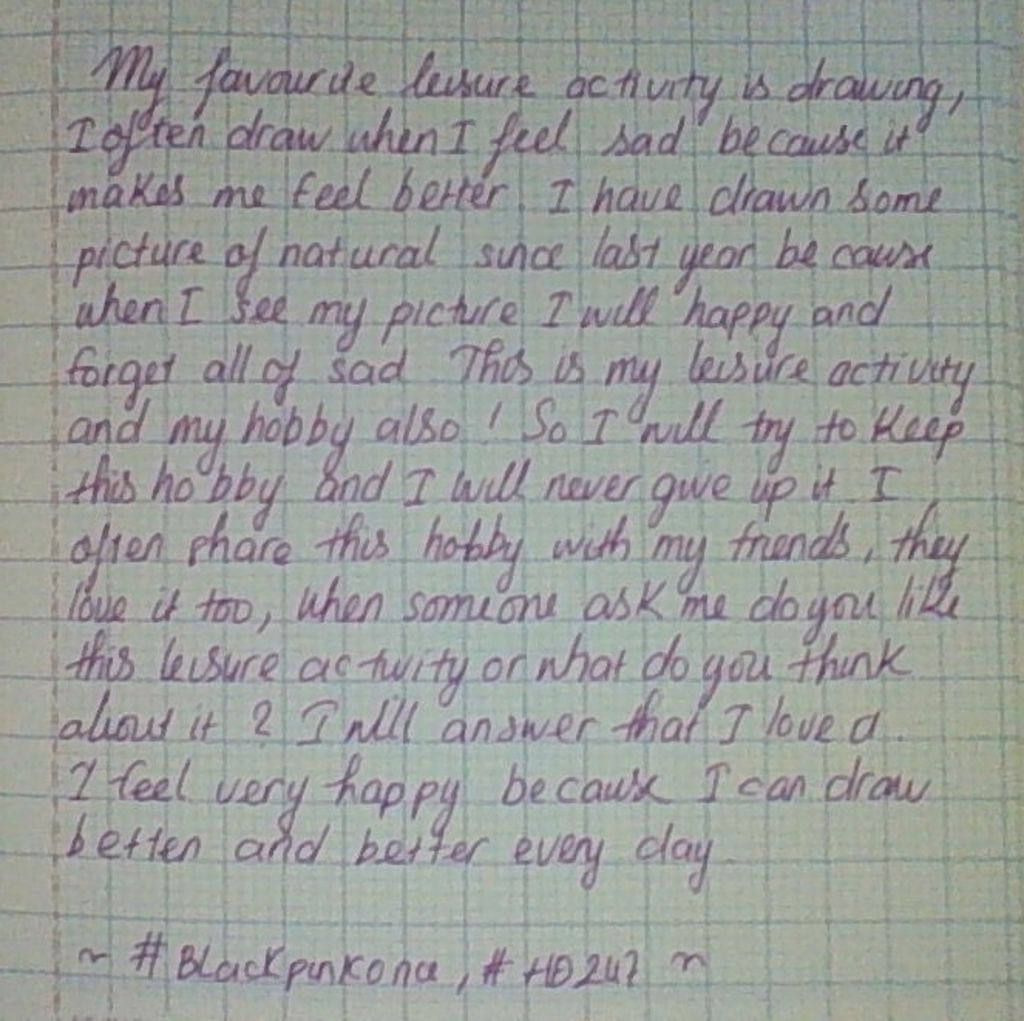 My favourite leisure activity is drawing,
I often draw when I feel sad because it
makes me feel better. I have drawn some
picture of natural since last year because
when I see my picture I will happy and
forget all of sad This is my leisure activity
and my hobby also! So I will try to keep
this hobby and I will never give up it I
often phare this hobby with my friends, they
love it too, when someone ask me do you like
this leisure activity or what do you think
about it? I will answer that I love a.
I feel very happy because I can draw
better and better every day
~ #Blackpinkona, #HD247 ~